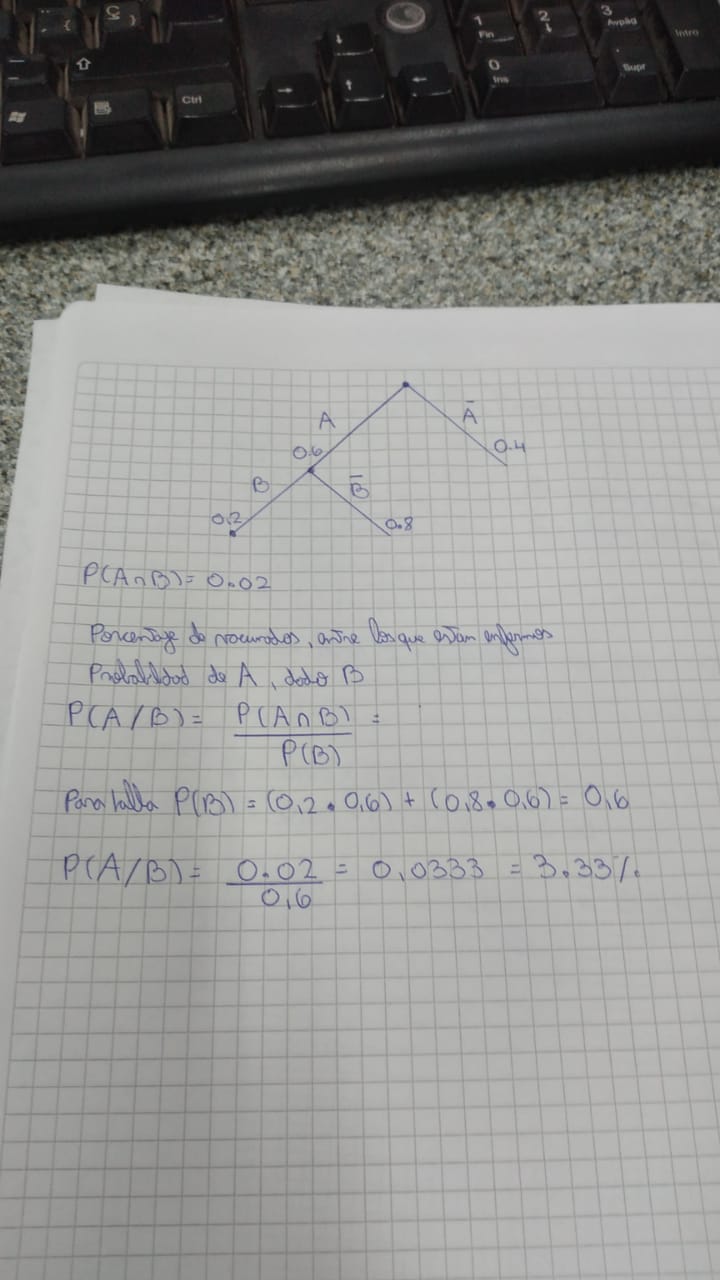 Ctrl
1
Fin
2
3
AvPág
Intro
0
Ins
Supr
A
Ā
0.6
0.4
B
B̄
0.2
0.8
P(A∩B)= 0.02
Porcentaje de vacunados, entre los que estan enfermos
Probabilidad de A, dado B
P(A/B)= P(A∩B) =
P(B)
Para halla P(B) = (0,2 • 0,6) + (0,8 • 0,6) = 0,6
P(A/B)= 0.02 = 0,0333 = 3.33%
0,6